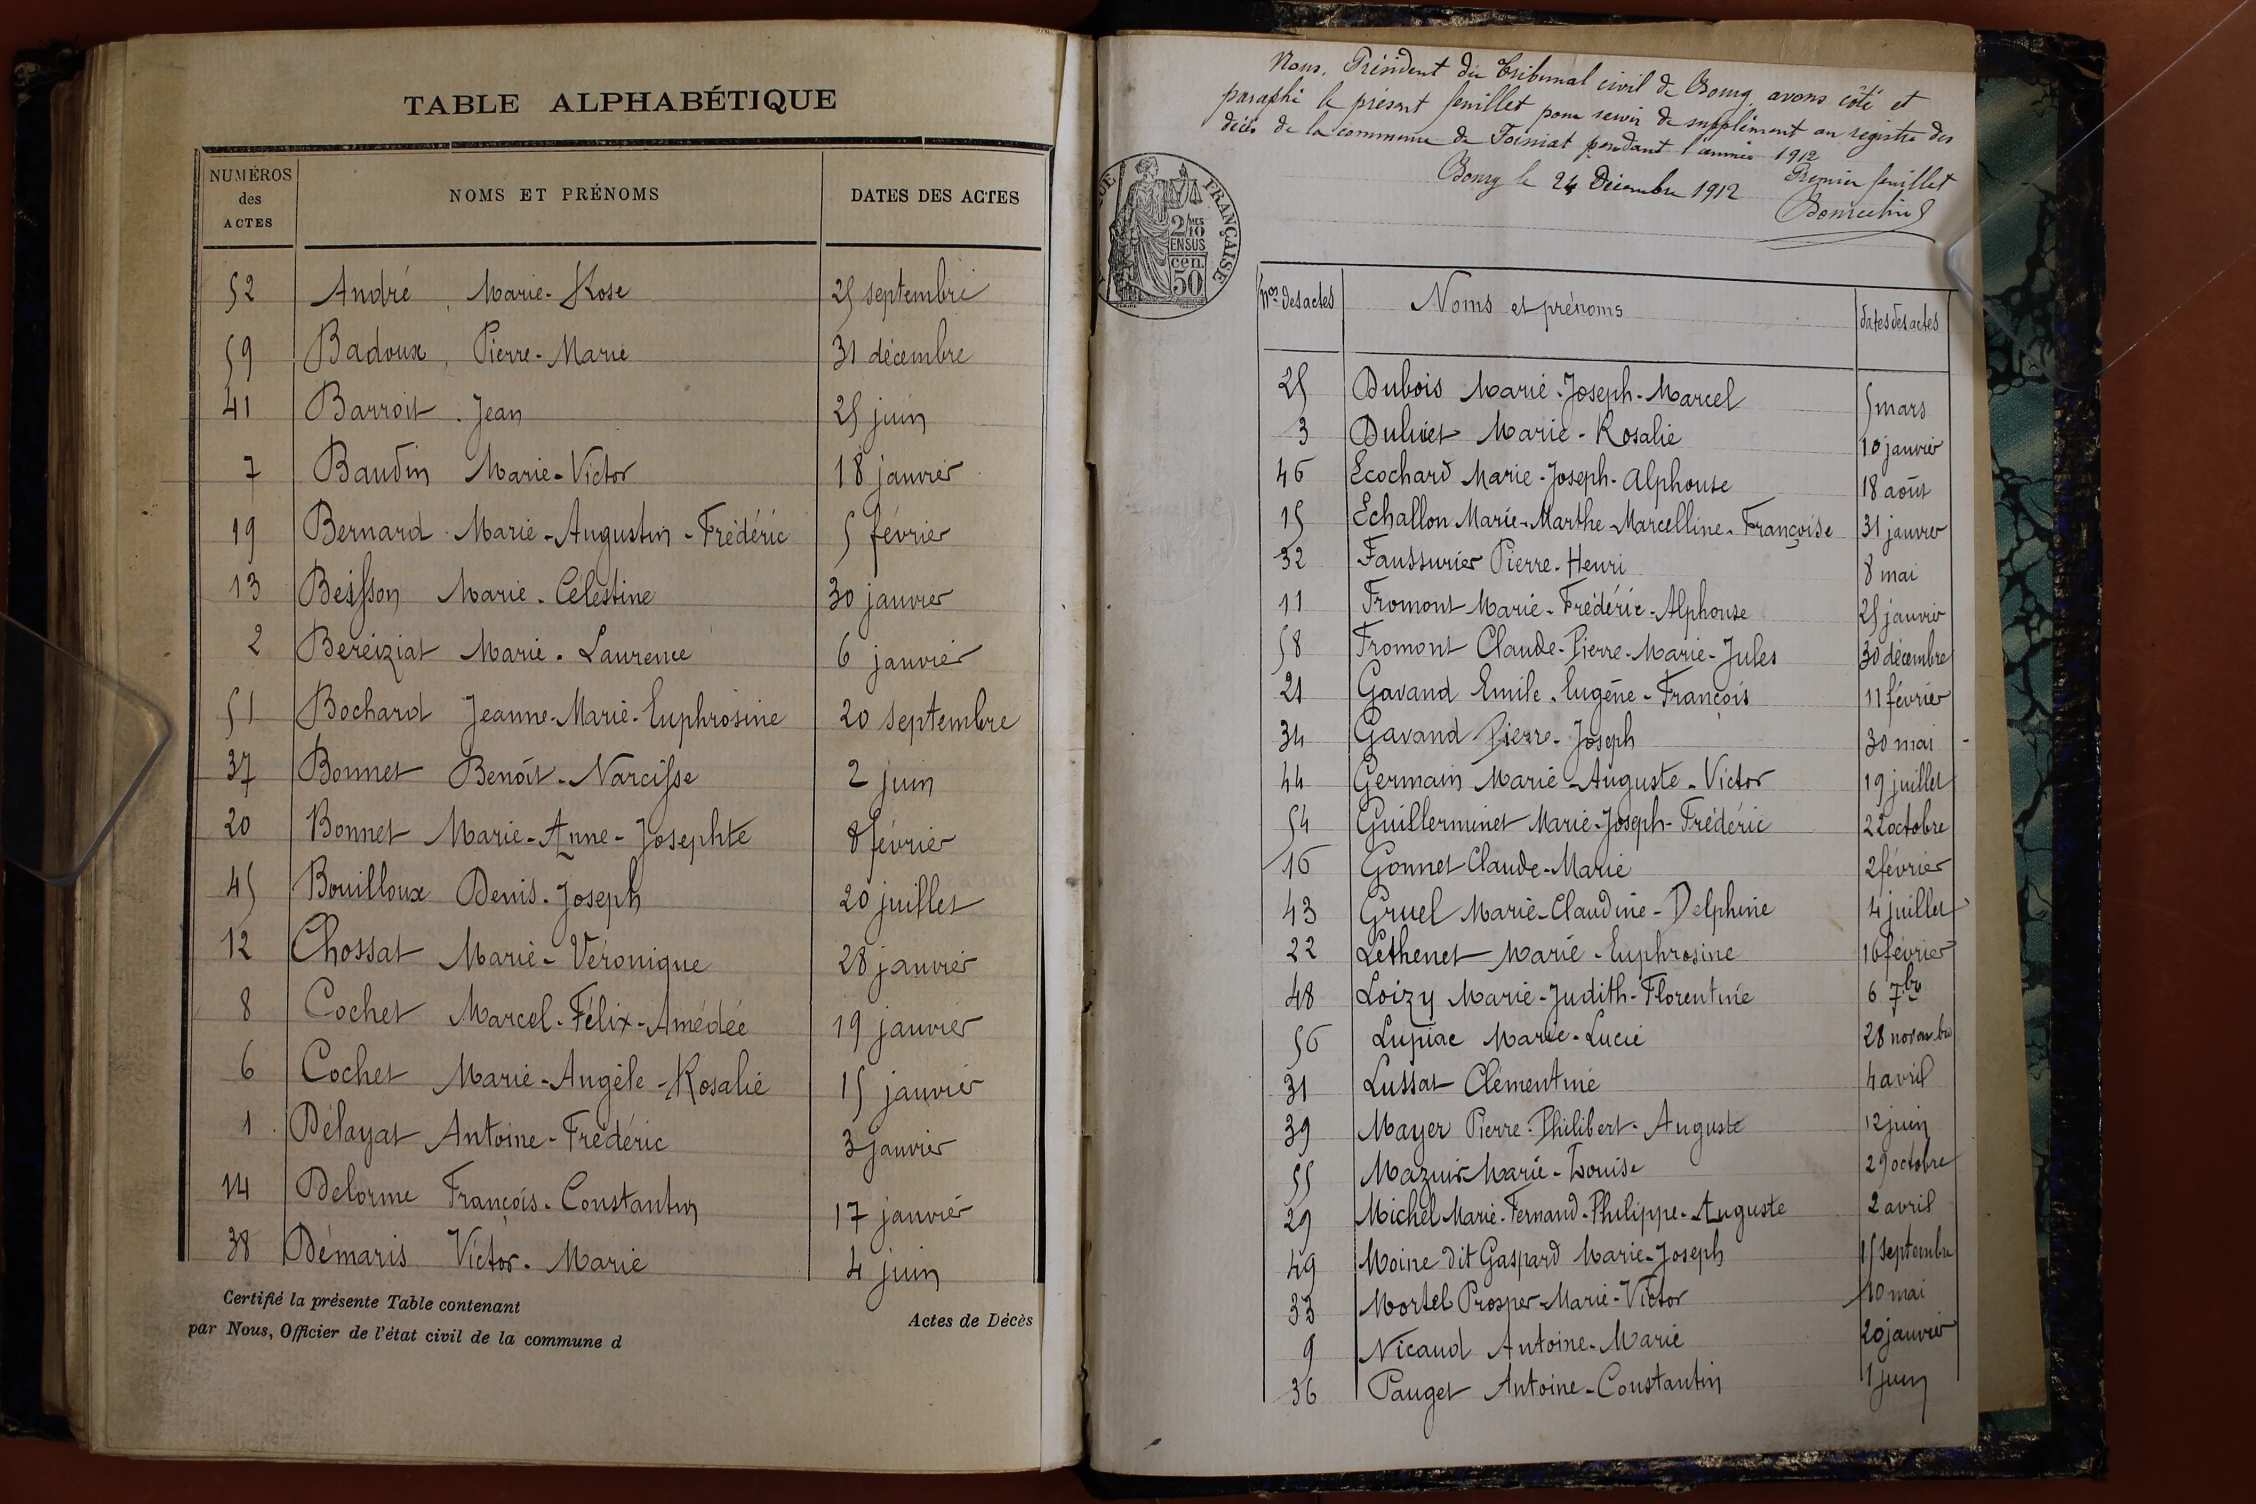 TABLE ALPHABÉTIQUE
NUMÉROS des ACTES NOMS ET PRÉNOMS DATES DES ACTES
52 André, Marie-Rose 25 septembre
59 Badoux, Pierre-Marie 31 décembre
41 Barroit Jean 25 juin
7 Baudin Marie-Victor 18 janvier
19 Bernard Marie-Augustin-Frédéric 5 février
13 Beisson Marie-Célestine 30 janvier
2 Bereiziat Marie-Laurence 6 janvier
51 Bochard Jeanne-Marie-Euphrosine 20 septembre
37 Bonnet Benoît-Narcisse 2 juin
20 Bonnet Marie-Anne-Josephte 8 février
45 Bouilloux Denis-Joseph 20 juillet
12 Chossat Marie-Véronique 28 janvier
8 Cochet Marcel-Félix-Amédée 19 janvier
6 Cochet Marie-Angèle-Rosalie 15 janvier
1 Délayat Antoine-Frédéric 3 janvier
14 Delorme François-Constantin 17 janvier
38 Démaris Victor-Marie 4 juin
Certifié la présente Table contenant Actes de Décès
par Nous, Officier de l'état civil de la commune d
Nous, Président du Tribunal civil de Bourg, avons côté et
paraphé le présent feuillet pour servir de supplément au registre des
décès de la commune de Foissiat pendant l'année 1912
Bourg le 24 Décembre 1912 Premier feuillet
FRANÇAISE
2/10 MES
EN SUS
50 cen.
Nos des actes Noms et prénoms dates des actes
25 Dubois Marie-Joseph-Marcel 5 mars
3 Dubiet Marie-Rosalie 10 janvier
46 Ecochard Marie-Joseph-Alphonse 18 août
15 Echallon Marie-Marthe-Marcelline-Françoise 31 janvier
32 Faussurier Pierre-Henri 8 mai
11 Fromont Marie-Frédéric-Alphonse 25 janvier
58 Fromont Claude-Pierre-Marie-Jules 30 décembre
21 Gavand Emile-Eugène-François 11 février
34 Gavand Pierre-Joseph 30 mai
44 Germain Marie-Auguste-Victor 19 juillet
54 Guillerminet Marie-Joseph-Frédéric 22 octobre
16 Gonnet Claude-Marie 2 février
43 Gruel Marie-Claudine-Delphine 4 juillet
22 Lethenet Marie-Euphrosine 16 février
48 Loizy Marie-Judith-Florentine 6 7bre
56 Lupiac Marie-Lucie 28 novembre
31 Lussat Clémentine 4 avril
39 Mayer Pierre-Philibert-Auguste 12 juin
55 Mazuir Marie-Louise 29 octobre
29 Michel Marie-Fernand-Philippe-Auguste 2 avril
49 Moine dit Gaspard Marie-Joseph 15 septembre
33 Mortel Prosper-Marie-Victor 10 mai
9 Nicaud Antoine-Marie 20 janvier
36 Pauget Antoine-Constantin 1 juin